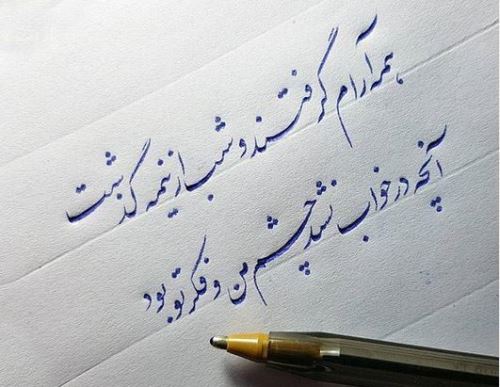 همه آرام گرفتند و شب از نیمه گذشت
آنچه در خواب نشد چشم من و فکر تو بود